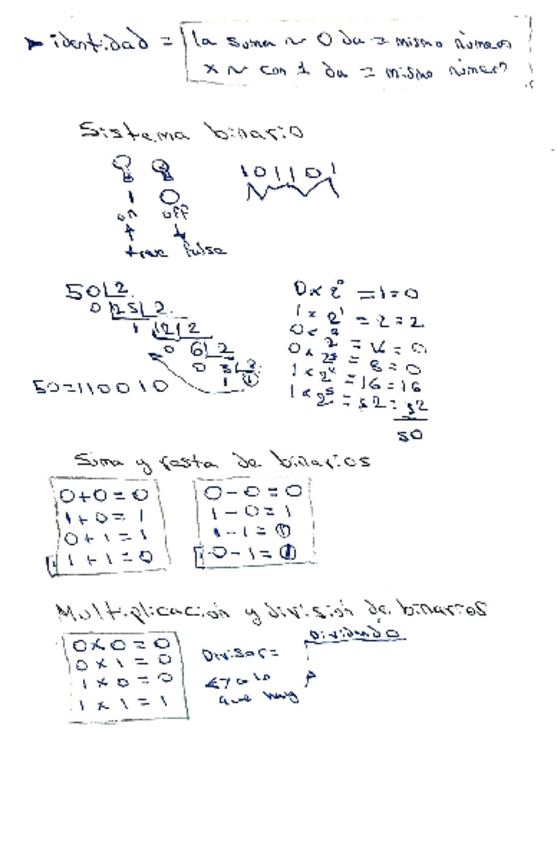 identidad = la suma ~ 0 da = mismo número
x ~ con 1 da = mismo número
Sistema binario
1 0
101101
on off
true false
50 2
0 25 2
1 12 2
0 6 2
0 3 2
1 1
50=110010
0 x 2⁰ = 1 = 0
1 x 2¹ = 2 = 2
0 x 2² = 4 = 0
0 x 2³ = 8 = 0
1 x 2⁴ = 16 = 16
1 x 2⁵ = 32 = 32
50
Suma y resta de binarios
0+0=0
1+0=1
0+1=1
1+1=0
0-0=0
1-0=1
1-1=0
0-1=1
Multiplicación y división de binarios
0x0=0
0x1=0
1x0=0
1x1=1
Divisor=
Dividendo
que hay